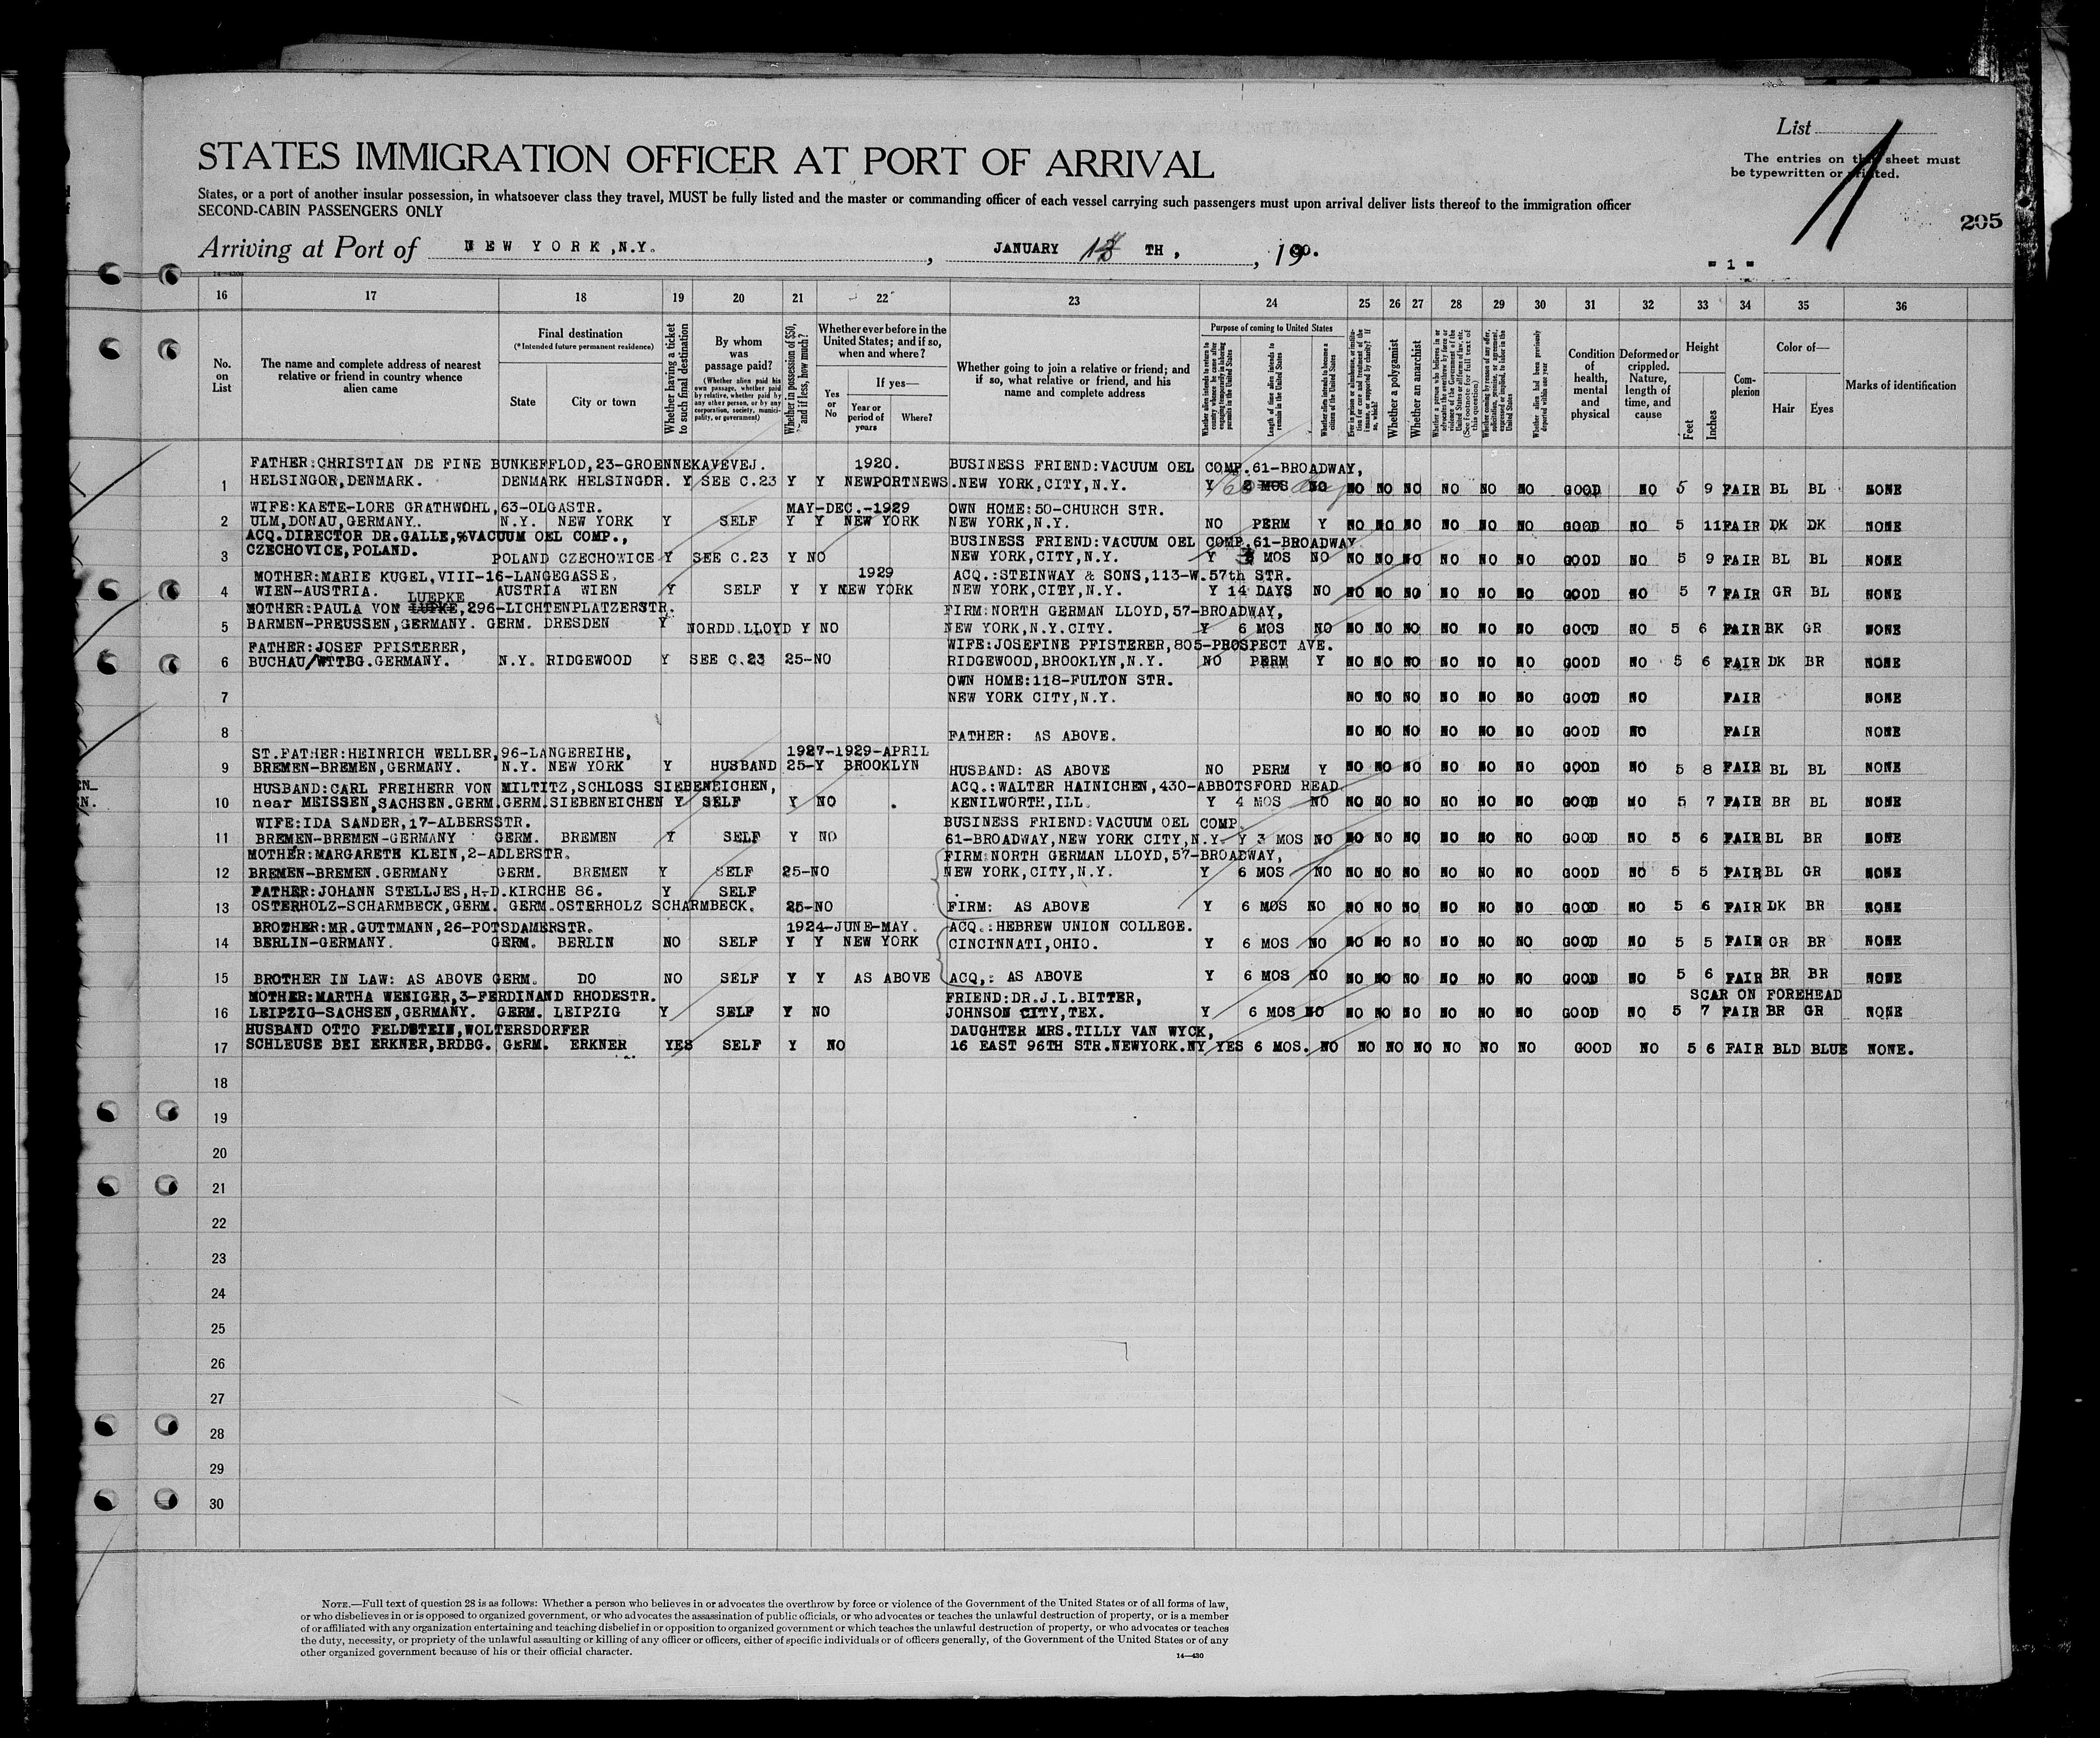 List
The entries on this sheet must
be typewritten or printed.
STATES IMMIGRATION OFFICER AT PORT OF ARRIVAL
States, or a port of another insular possession, in whatsoever class they travel, MUST be fully listed and the master or commanding officer of each vessel carrying such passengers must upon arrival deliver lists thereof to the immigration officer
SECOND-CABIN PASSENGERS ONLY
205
Arriving at Port of NEW YORK, N.Y. , JANUARY TH, , 19 30.
= 1 =
16 17 18 19 20 21 22 23 24 25 26 27 28 29 30 31 32 33 34 35 36
No. on List
The name and complete address of nearest relative or friend in country whence alien came
Final destination
(*Intended future permanent residence)
State
City or town
Whether having a ticket to such final destination
By whom was passage paid?
(Whether alien paid his own passage, whether paid by relative, whether paid by any other person, or by any corporation, society, municipality, or government)
Whether in possession of $50, and if less, how much?
Whether ever before in the United States; and if so, when and where?
Yes or No
If yes—
Year or period of years
Where?
Whether going to join a relative or friend; and if so, what relative or friend, and his name and complete address
Purpose of coming to United States
Length of time alien intends to remain in the United States
Whether alien intends to become a citizen of the United States
Whether a polygamist
Whether an anarchist
Condition of health, mental and physical
Deformed or crippled. Nature, length of time, and cause
Height
Feet
Inches
Complexion
Color of—
Hair
Eyes
Marks of identification
FATHER:CHRISTIAN DE FINE BUNKEFFLOD,23-GROENNEKAVEVEJ. 1920. BUSINESS FRIEND:VACUUM OEL COMP.61-BROADWAY,
1 HELSINGOR,DENMARK. DENMARK HELSINGOR. Y SEE C.23 Y Y NEWPORTNEWS. NEW YORK,CITY,N.Y. Y MOS NO NO NO NO NO NO NO GOOD NO 5 9 FAIR BL BL NONE
WIFE:KAETE-LORE GRATHWOHL,63-OLGASTR. MAY-DEC.-1929 OWN HOME:50-CHURCH STR.
2 ULM,DONAU,GERMANY. N.Y. NEW YORK Y SELF Y Y NEW YORK NEW YORK,N.Y. NO PERM Y NO NO NO NO NO NO GOOD NO 5 11 FAIR DK DK NONE
ACQ.DIRECTOR DR.GALLE,%VACUUM OEL COMP., BUSINESS FRIEND:VACUUM OEL COMP.61-BROADWAY
3 CZECHOVICE,POLAND. POLAND CZECHOWICE Y SEE C.23 Y NO NEW YORK,CITY,N.Y. Y 3 MOS NO NO NO NO NO NO NO GOOD NO 5 9 FAIR BL BL NONE
MOTHER:MARIE KUGEL,VIII-16-LANGEGASSE, 1929 ACQ.:STEINWAY & SONS,113-W.57th STR.
4 WIEN-AUSTRIA. AUSTRIA WIEN Y SELF Y Y NEW YORK NEW YORK,CITY,N.Y. Y 14 DAYS NO NO NO NO NO NO NO GOOD NO 5 7 FAIR GR BL NONE
LUEPKE
MOTHER:PAULA VON LUPKE,296-LICHTENPLATZERSTR. FIRM:NORTH GERMAN LLOYD,57-BROADWAY,
5 BARMEN-PREUSSEN,GERMANY. GERM. DRESDEN Y NORDD.LLOYD Y NO NEW YORK,N.Y.CITY. Y 6 MOS NO NO NO NO NO NO NO GOOD NO 5 6 FAIR BK GR NONE
FATHER:JOSEF PFISTERER, WIFE:JOSEFINE PFISTERER,805-PROSPECT AVE.
6 BUCHAU/WTTBG.GERMANY. N.Y. RIDGEWOOD Y SEE C.23 25-NO RIDGEWOOD,BROOKLYN,N.Y. NO PERM Y NO NO NO NO NO NO GOOD NO 5 6 FAIR DK BR NONE
OWN HOME:118-FULTON STR.
7 NEW YORK CITY,N.Y. NO NO NO NO NO NO GOOD NO FAIR NONE
8 FATHER: AS ABOVE. NO NO NO NO NO NO GOOD NO FAIR NONE
ST.FATHER:HEINRICH WELLER,96-LANGEREIHE, 1927-1929-APRIL
9 BREMEN-BREMEN,GERMANY. N.Y. NEW YORK Y HUSBAND 25-Y BROOKLYN HUSBAND: AS ABOVE NO PERM Y NO NO NO NO NO NO GOOD NO 5 8 FAIR BL BL NONE
HUSBAND:CARL FREIHERR VON MILTITZ,SCHLOSS SIEBENEICHEN, ACQ.:WALTER HAINICHEN,430-ABBOTSFORD READ.
10 near MEISSEN,SACHSEN.GERM. GERM.SIEBENEICHEN Y SELF Y NO . KENILWORTH,ILL. Y 4 MOS NO NO NO NO NO NO NO GOOD NO 5 7 FAIR BR BL NONE
WIFE:IDA SANDER,17-ALBERSSTR. BUSINESS FRIEND:VACUUM OEL COMP.
11 BREMEN-BREMEN-GERMANY GERM. BREMEN Y SELF Y NO 61-BROADWAY,NEW YORK CITY,N.Y. Y 3 MOS NO NO NO NO NO NO NO GOOD NO 5 6 FAIR BL BR NONE
MOTHER:MARGARETE KLEIN,2-ADLERSTR. FIRM:NORTH GERMAN LLOYD,57-BROADWAY,
12 BREMEN-BREMEN.GERMANY GERM. BREMEN Y SELF 25-NO NEW YORK,CITY,N.Y. Y 6 MOS NO NO NO NO NO NO NO GOOD NO 5 5 FAIR BL GR NONE
FATHER:JOHANN STELLJES,H-D.KIRCHE 86. Y SELF
13 OSTERHOLZ-SCHARMBECK,GERM. GERM.OSTERHOLZ SCHARMBECK. 25-NO FIRM: AS ABOVE Y 6 MOS NO NO NO NO NO NO NO GOOD NO 5 6 FAIR DK BR NONE
BROTHER:MR.GUTTMANN,26-POTSDAMERSTR. 1924-JUNE-MAY. ACQ.:HEBREW UNION COLLEGE.
14 BERLIN-GERMANY. GERM. BERLIN NO SELF Y Y NEW YORK CINCINNATI,OHIO. Y 6 MOS NO NO NO NO NO NO NO GOOD NO 5 5 FAIR GR BR NONE
15 BROTHER IN LAW: AS ABOVE GERM. DO NO SELF Y Y AS ABOVE ACQ,: AS ABOVE Y 6 MOS NO NO NO NO NO NO NO GOOD NO 5 6 FAIR BR BR NONE
MOTHER:MARTHA WENIGER,3-FERDINAND RHODESTR. FRIEND:DR.J.L.BITTER, SCAR ON FOREHEAD
16 LEIPZIG-SACHSEN,GERMANY. GERM. LEIPZIG Y SELF Y NO JOHNSON CITY,TEX. Y 6 MOS NO NO NO NO NO NO NO GOOD NO 5 7 FAIR BR GR NONE
HUSBAND OTTO FELDSTEIN,WOLTERSDORFER DAUGHTER MRS.TILLY VAN WYCK,
17 SCHLEUSE BEI ERKNER,BRDBG. GERM. ERKNER YES SELF Y NO 16 EAST 96TH STR.NEWYORK.NY YES 6 MOS. NO NO NO NO NO NO NO GOOD NO 5 6 FAIR BLD BLUE NONE.
18
19
20
21
22
23
24
25
26
27
28
29
30
NOTE.—Full text of question 28 is as follows: Whether a person who believes in or advocates the overthrow by force or violence of the Government of the United States or of all forms of law,
or who disbelieves in or is opposed to organized government, or who advocates the assassination of public officials, or who advocates or teaches the unlawful destruction of property, or is a member
of or affiliated with any organization entertaining and teaching disbelief in or opposition to organized government or which teaches the unlawful destruction of property, or who advocates or teaches
the duty, necessity, or propriety of the unlawful assaulting or killing of any officer or officers, either of specific individuals or of officers generally, of the Government of the United States or of any
other organized government because of his or their official character.
14—430